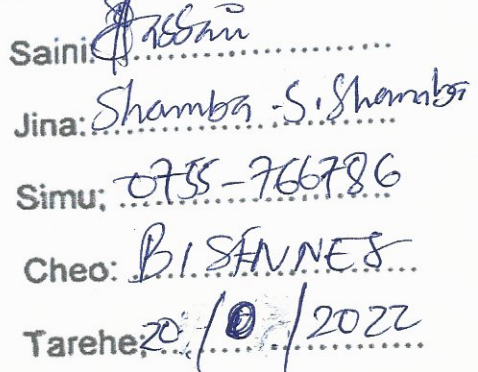 Saini: Hassan
Jina: Shamba .S. Shamba
Simu: 0755-766786
Cheo: BISENNES
Tarehe: 20/0/2022